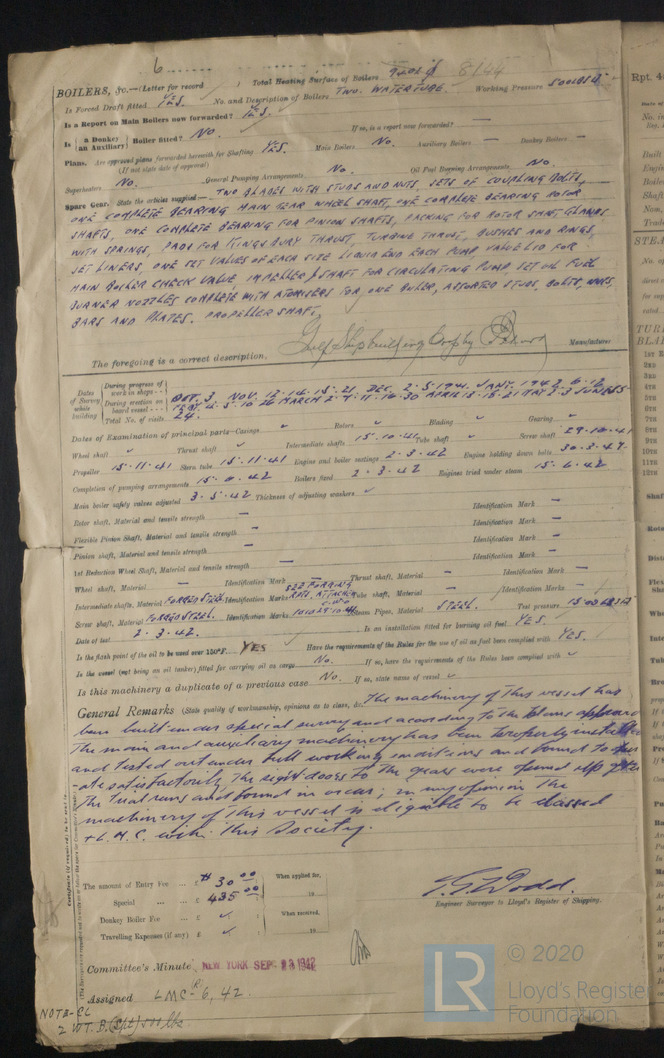 6
BOILERS, &c.—(Letter for record ) Total Heating Surface of Boilers 8144
Is Forced Draft fitted YES. No. and Description of Boilers TWO. WATERTUBE. Working Pressure 500 LBS
Is a Report on Main Boilers now forwarded? YES.
Is {a Donkey / an Auxiliary} Boiler fitted? NO. If so, is a report now forwarded? —
Plans. Are approved plans forwarded herewith for Shafting YES. Main Boilers NO. Auxiliary Boilers — Donkey Boilers —
(If not state date of approval)
Superheaters NO. General Pumping Arrangements NO. Oil Fuel Burning Arrangements NO.
Spare Gear. State the articles supplied:— TWO BLADES WITH STUDS AND NUTS, SETS OF COUPLING BOLTS,
ONE COMPLETE BEARING MAIN GEAR WHEEL SHAFT, ONE COMPLETE BEARING ROTOR
SHAFTS, ONE COMPLETE BEARING FOR PINION SHAFTS, PACKING FOR ROTOR SHAFT GLANDS
WITH SPRINGS, PADS FOR KINGSBURY THRUST, TURBINE THRUST, BUSHES AND RINGS,
SET LINERS, ONE SET VALVES OF EACH SIZE LIQUID END EACH PUMP VALVE LID FOR
MAIN BOILER CHECK VALVE, IMPELLER & SHAFT FOR CIRCULATING PUMP, SET OIL FUEL
BURNER NOZZLES COMPLETE WITH ATOMISERS FOR ONE BOILER, ASSORTED STUDS, BOLTS, NUTS,
BARS AND PLATES. PROPELLER SHAFT.
Gulf Shipbuilding Corp by
The foregoing is a correct description. Manufacturer
Dates of Survey while building
During progress of work in shops - - OCT. 3, NOV. 12-14-15-21, DEC. 2-5-1941. JANY. 1942
During erection on board vessel - - - FEBY. 4-5-10-26 MARCH 2-9-11-16-30 APRIL 13-15-21 MAY 3-3 JUNE
Total No. of visits 24.
Dates of Examination of principal parts—Casings Rotors Blading Gearing
Wheel shaft Thrust shaft Intermediate shafts 15-10-41 Tube shaft Screw shaft 29-10-41
Propeller 15-11-41 Stern tube 15-11-41 Engine and boiler seatings 2-3-42 Engine holding down bolts 30-3-42
Completion of pumping arrangements Boilers fixed 2-3-42 Engines tried under steam 15-6-42
Main boiler safety valves adjusted 3-5-42 Thickness of adjusting washers
Rotor shaft, Material and tensile strength — Identification Mark —
Flexible Pinion Shaft, Material and tensile strength — Identification Mark —
Pinion shaft, Material and tensile strength — Identification Mark —
1st Reduction Wheel Shaft, Material and tensile strength — Identification Mark —
Wheel shaft, Material — Identification Mark — Thrust shaft, Material — Identification Mark —
Intermediate shafts, Material FORGED STEEL Identification Marks SEE FORGING RPTS, ATTACHED Tube shaft, Material — Identification Marks —
Screw shaft, Material FORGED STEEL. Identification Marks Steam Pipes, Material STEEL. Test pressure
Date of test 2-3-42. Is an installation fitted for burning oil fuel YES.
Is the flash point of the oil to be used over 150°F. YES Have the requirements of the Rules for the use of oil as fuel been complied with YES.
Is the vessel (not being an oil tanker) fitted for carrying oil as cargo No. If so, have the requirements of the Rules been complied with
Is this machinery a duplicate of a previous case NO. If so, state name of vessel
General Remarks (State quality of workmanship, opinions as to class, &c. The machinery of this vessel has
been built under special survey and according to the plans approved
The main and auxiliary machinery has been properly installed
and tested out under full working conditions and found to
-ate satisfactorily The sight doors to the gears were opened up after
the trial runs and found in order; in my opinion the
machinery of this vessel is eligible to be classed
+L.M.C. with this Society.
The amount of Entry Fee ... £ $ 30 00 When applied for,
Special ... ... £ 435 00 19
Donkey Boiler Fee ... £ When received,
Travelling Expenses (if any) £ 19
Dodd.
Engineer Surveyor to Lloyd's Register of Shipping.
Committee's Minute NEW YORK SEP. 1942
Assigned LMC 6, 42.
NOTE-CL
2 W.T.B. (Spt) 500 lbs
© 2020
Lloyd's Register
Foundation
LR
Rpt. 4